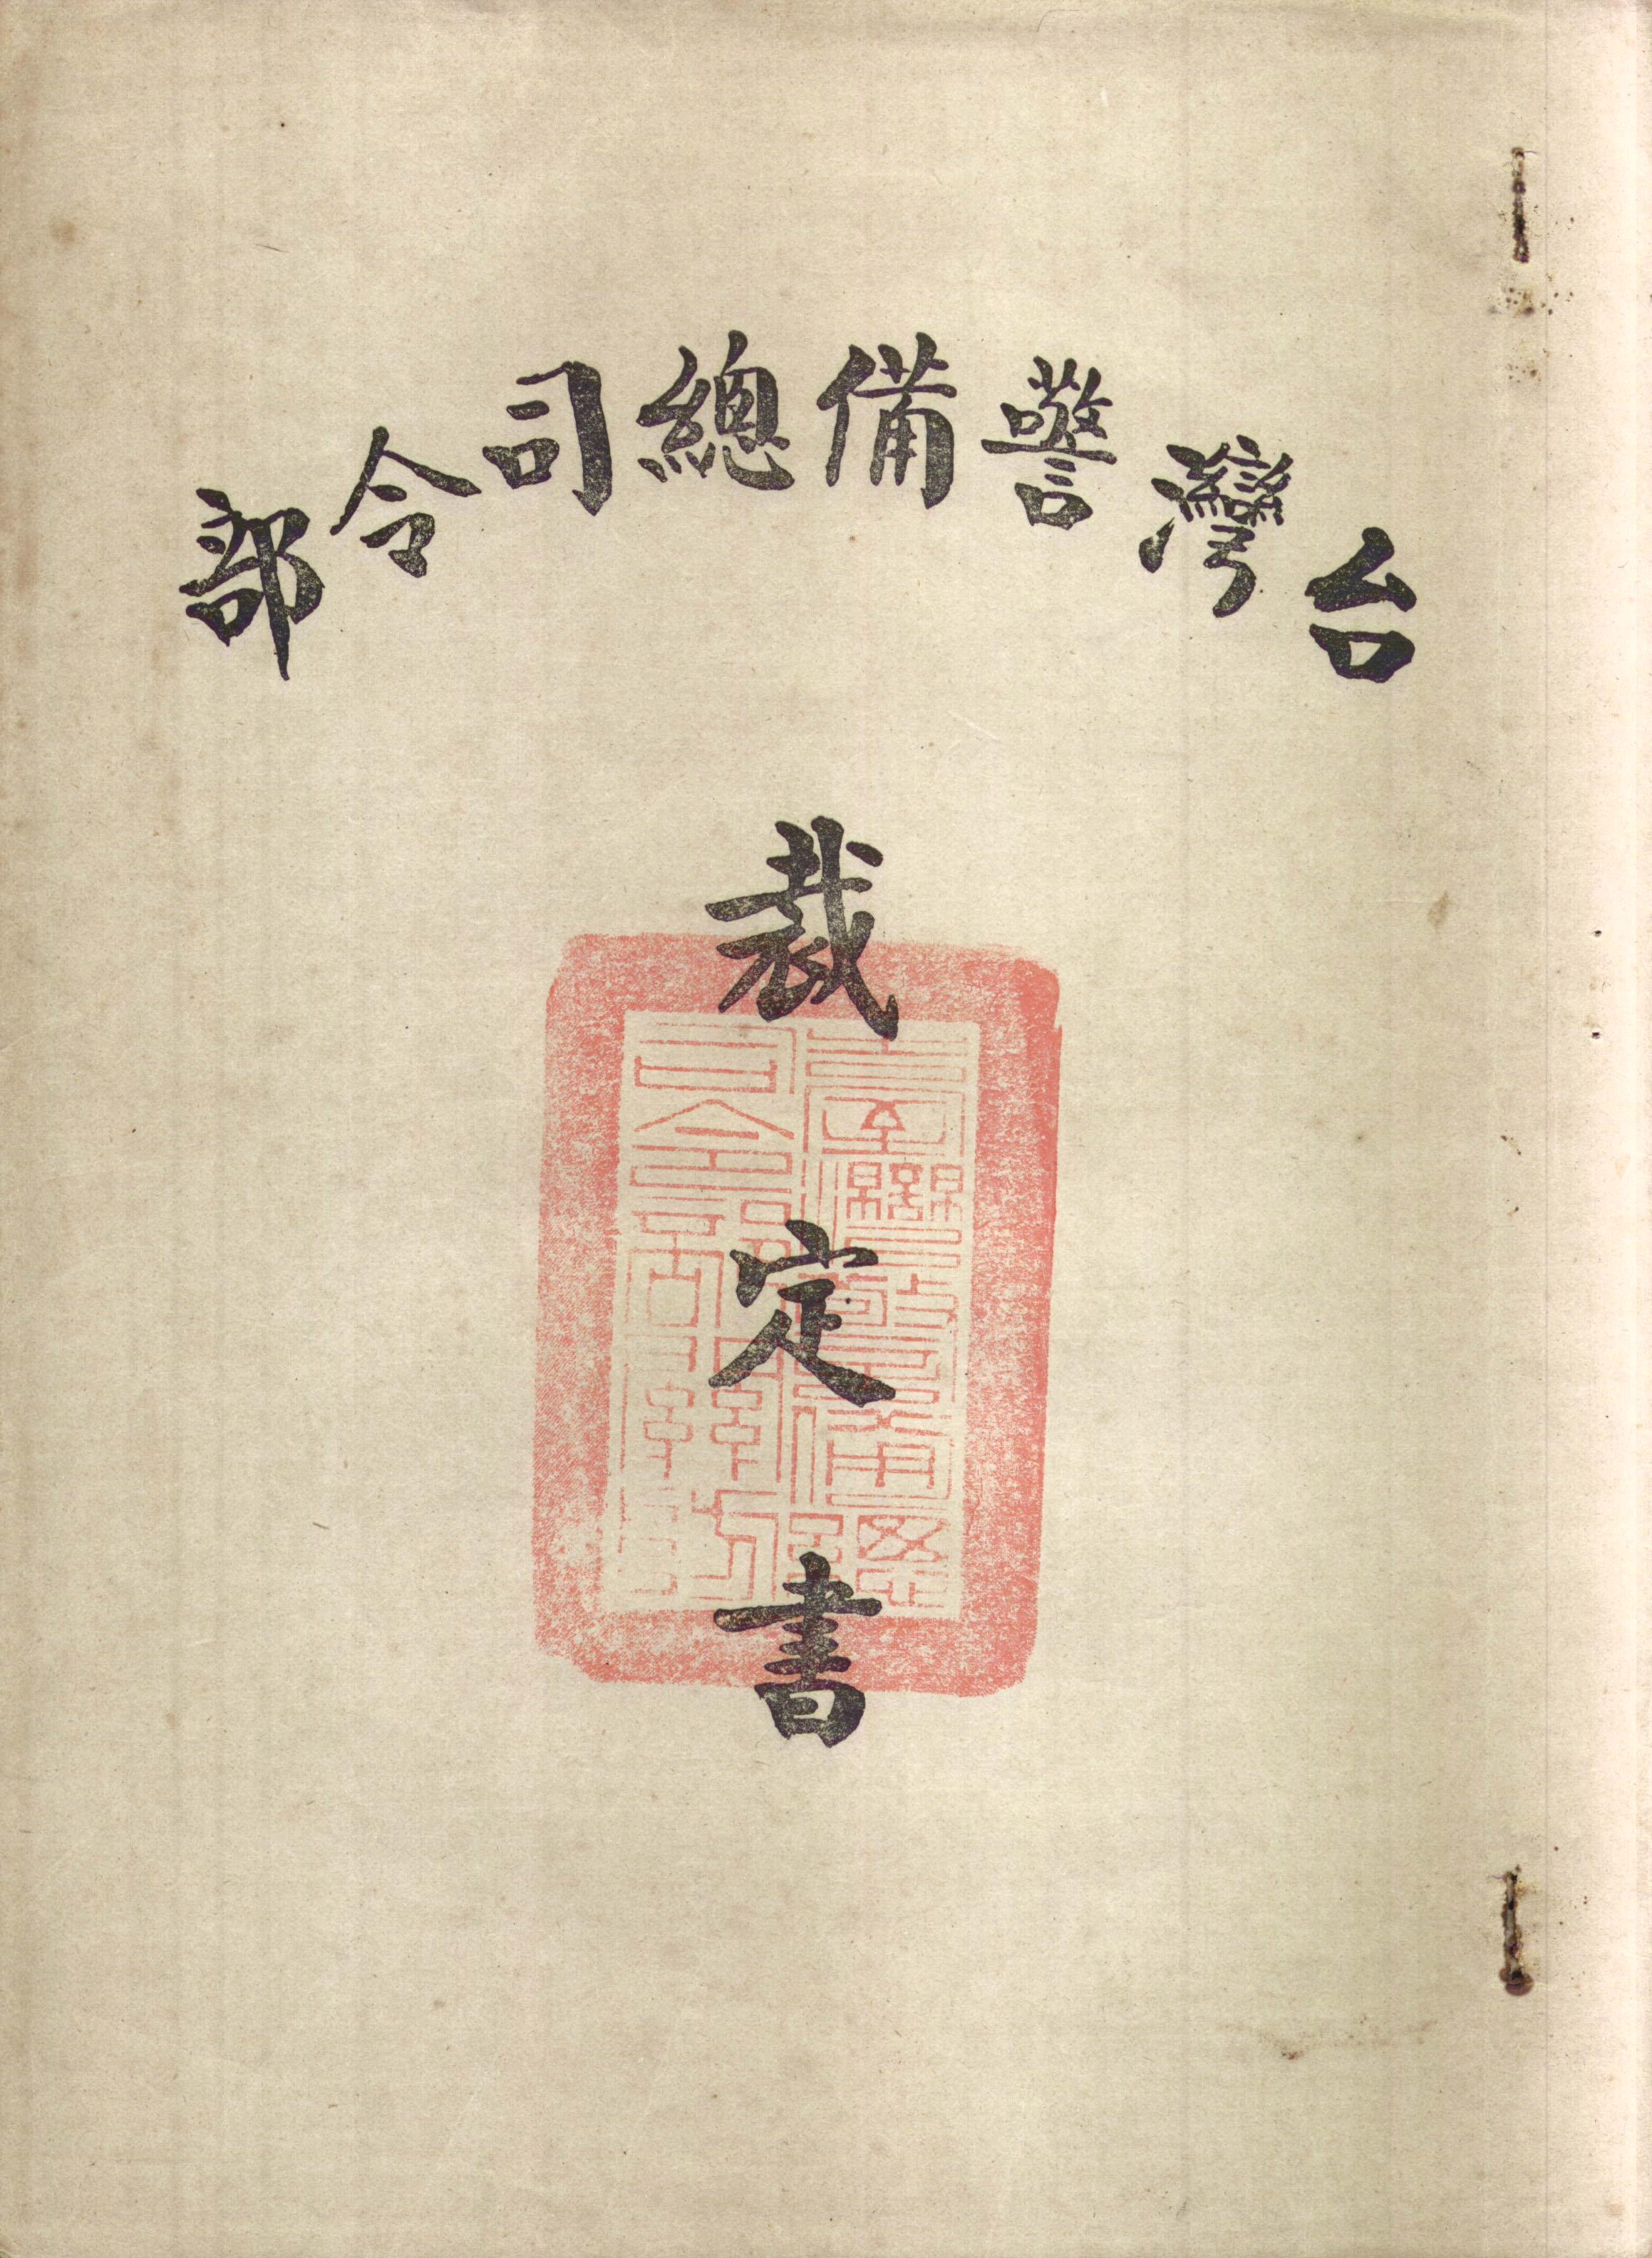 台灣警備總司令部
裁定書